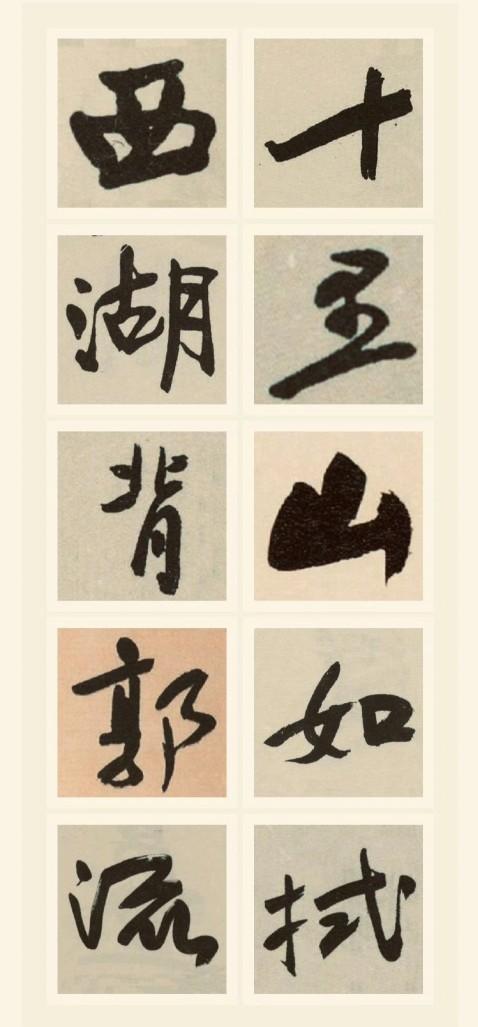 十里山如拭
西湖背郭流